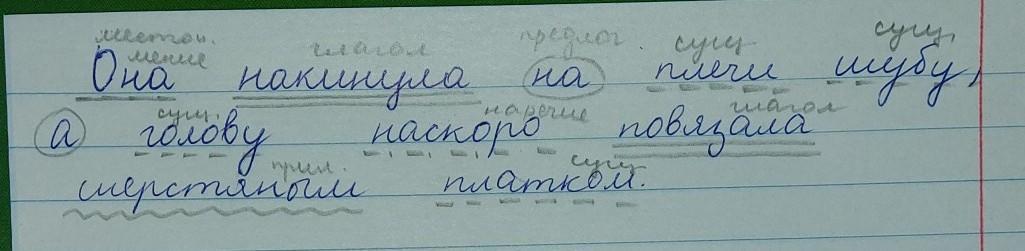 местои. глагол предлог. сущ сущ,
мение
Она накинула на плечи шубу,
сущ. наречие глагол
а голову наскоро повязала
прил. сущ
шерстяным платком.